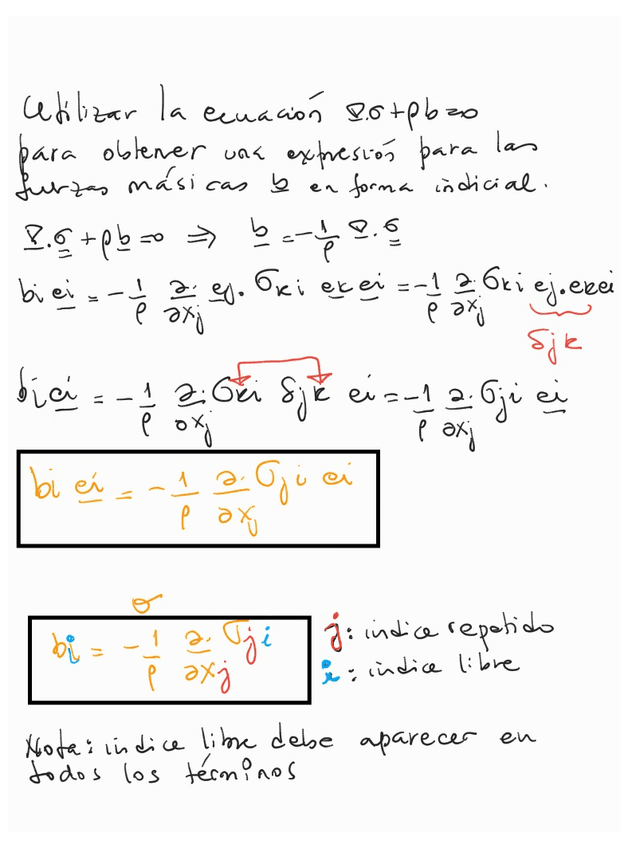 Utilizar la ecuación ∇.σ+ρb=0
para obtener una expresión para las
fuerzas másicas b en forma indicial.
∇.σ+ρb=0 ⇒ b=-1/ρ ∇.σ
bi ei = -1/ρ ∂./∂xj ej. σki ek ei = -1/ρ ∂./∂xj σki ej.ek ei
δjk
bi ei = -1/ρ ∂./∂xj σki δjk ei = -1/ρ ∂./∂xj σji ei
bi ei = -1/ρ ∂./∂xj σji ei
σ
bi = -1/ρ ∂./∂xj σji
j: indice repetido
i: indice libre
Nota: indice libre debe aparecer en
todos los términos